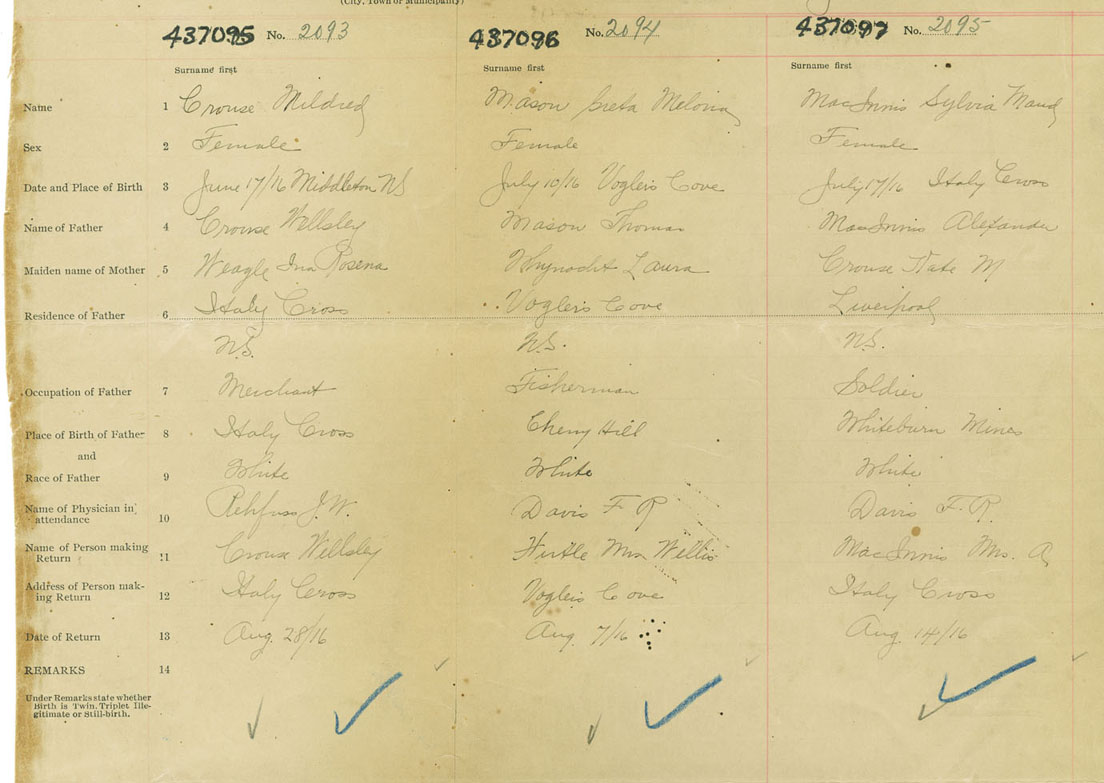 (City, Town or Municipality)
437095 No. 2093 437096 No. 2094 437097 No. 2095
Surname first Surname first Surname first
Name 1 Crouse Mildred Mason Greta Melvina MacInnis Sylvia Maud
Sex 2 Female Female Female
Date and Place of Birth 3 June 17/16 Middleton NS July 10/16 Voglers Cove July 17/16 Italy Cross
Name of Father 4 Crouse Wellsley Mason Thomas MacInnis Alexander
Maiden name of Mother 5 Weagle Ina Rosena Whynacht Laura Crouse Kate M
Residence of Father 6 Italy Cross Voglers Cove Liverpool
N.S. N.S. N.S.
Occupation of Father 7 Merchant Fisherman Soldier
Place of Birth of Father 8 Italy Cross Cherry Hill Whiteburn Mines
and
Race of Father 9 White White White
Name of Physician in attendance 10 Rehfuss J.W. Davis F R Davis F.R.
Name of Person making Return 11 Crouse Wellsley Hirtle Mrs Willis MacInnis Mrs. A
Address of Person mak-
ing Return 12 Italy Cross Voglers Cove Italy Cross
Date of Return 13 Aug. 28/16 Aug. 7/16 Aug 14/16
REMARKS 14
Under Remarks state whether
Birth is Twin, Triplet Ille-
gitimate or Still-birth.